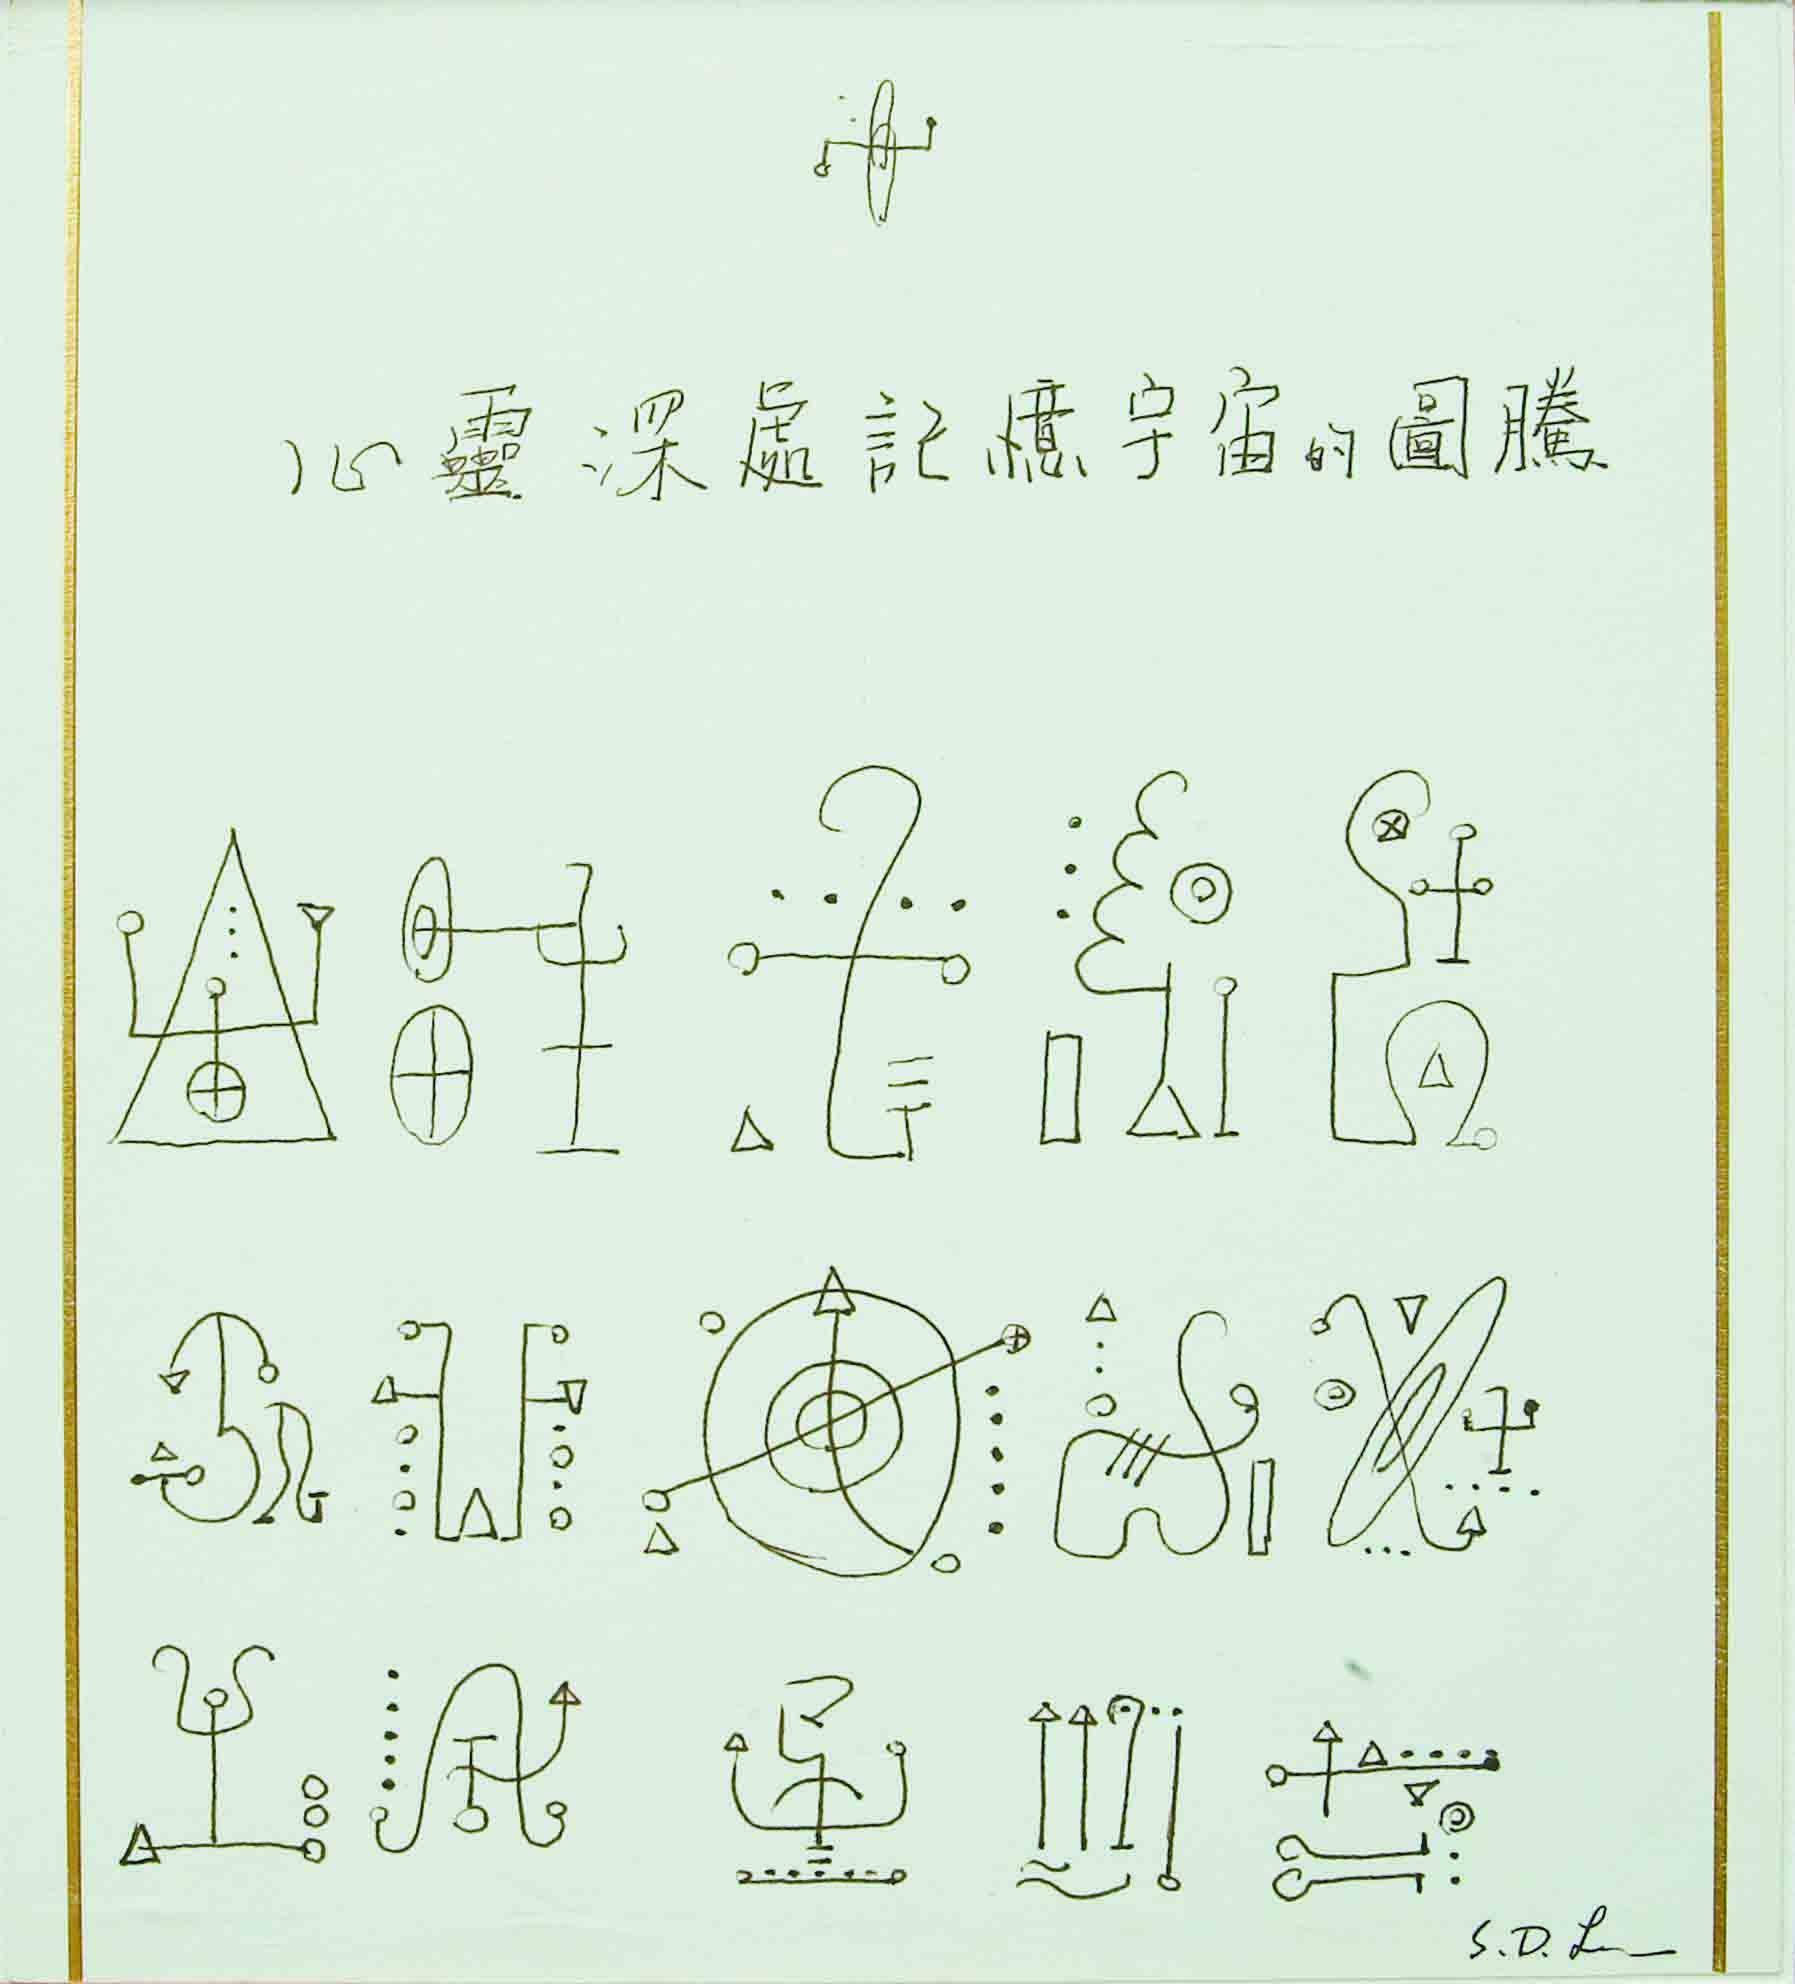 心靈深處記憶宇宙的圖騰
S. D. L